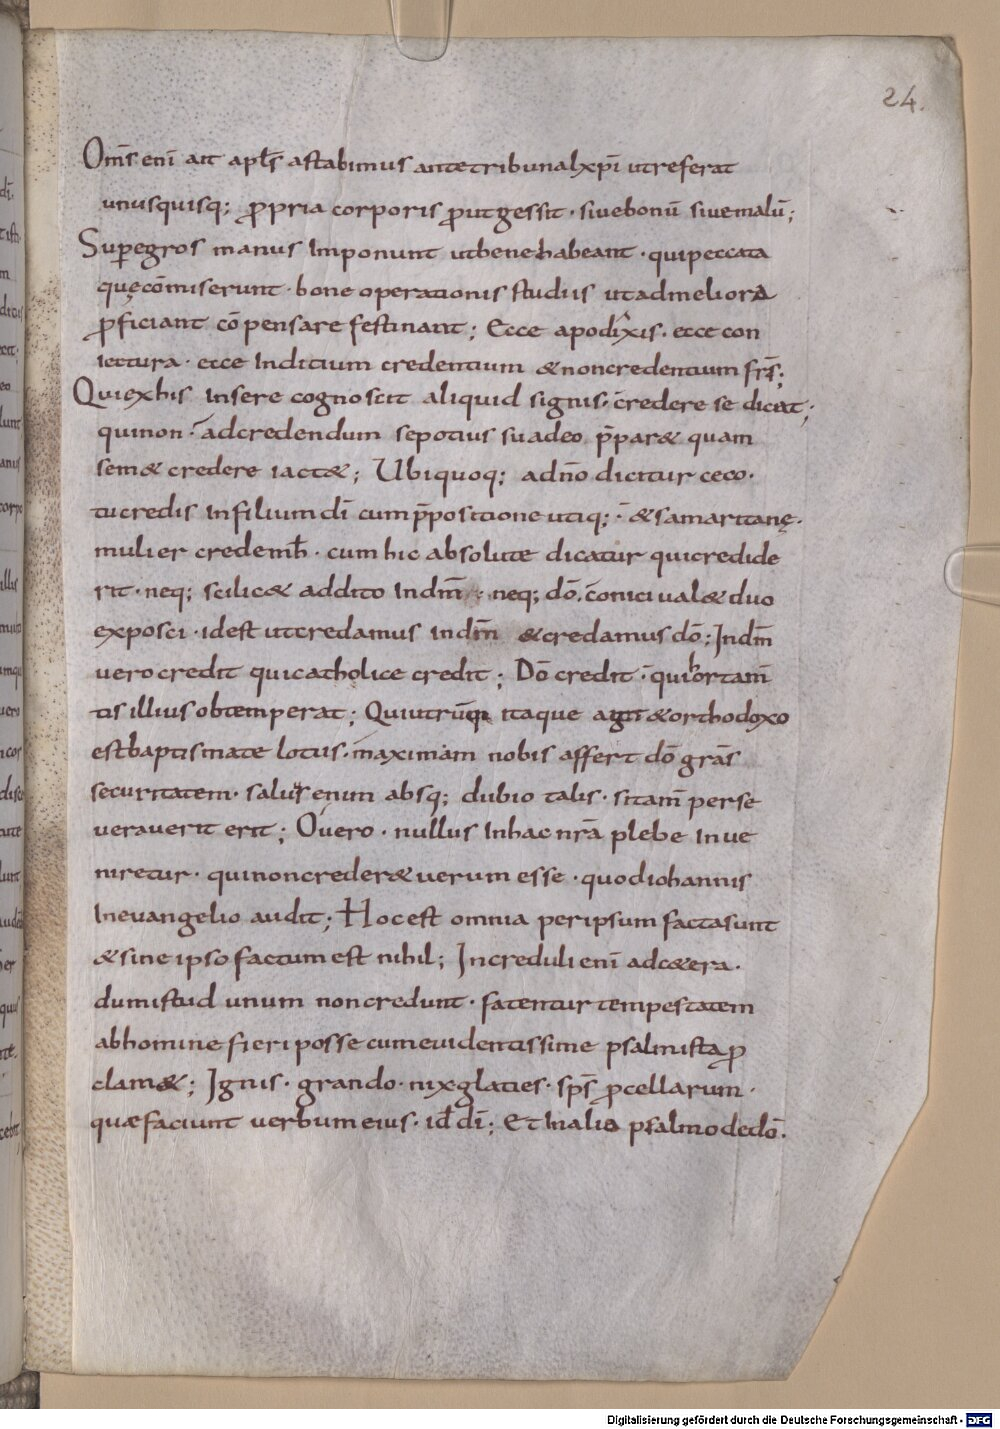 24.
Om̄s enī ait apl̄s astabimus ante tribunal xp̄i ut referat
unusquisq; ꝓpria corporis ꝓut gessit · sive bonū sive malū;
Suꝑ egros manus Imponunt ut bene habeant · qui peccata
quę cōmiserunt · bone operationis studiis ut ad meliora
ꝓficiant cō pensare festinant; Ecce apodixis · ecce con
iectura · ecce Inditium credentium & non credentium fr̄s;
Qui ex his Insere cognoscit aliquid signis · credere se dicat;
qui non · ad credendum se potius suadeo p̄par& quam
sem& credere iact&; Ubi quoq; adn̄o dicitur ceco ·
tu credis In filium dī cum p̄positione utiq; · & samaritanę ·
mulier crede mh̄ · cum hic absolute dicatur qui credide
rit · neq; scilic& addito In dm̄ · neq; dō · conici val& duo
exposci · id est ut credamus in dm̄ & credamus dō; In dm̄
vero credit qui catholice credit; Dō credit · qui hortam̄
tis illius obtemperat; Qui utrūq; itaque agit & orthodoxo
est baptismate lotus · maximam nobis affert dō grās
securitatem · salvus enim absq; dubio talis · si tam̄ perse
veraverit erit; O vero · nullus In hac nr̄a plebe Inve
niretur · qui non creder& verum esse · quod iohannis
In evangelio audit; Hoc est omnia per ipsum facta sunt
& sine ipso factum est nihil; Increduli enī ad c&era ·
dum istud unum non credunt · fatentur tempestatem
ab homine fieri posse cum evidentissime psalmista ꝓ
clam&; Ignis · grando · nix glaties · sps̄ ꝓcellarum ·
quæ faciunt verbum eius · id dī; Et In alio psalmo de dō ·
Digitalisierung gefördert durch die Deutsche Forschungsgemeinschaft - DFG